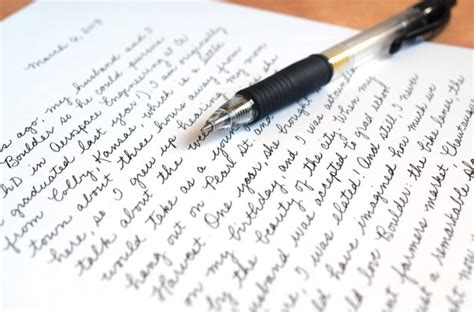 March 6,
s ago, my husband and I
Boulder so he could pursue
hD in Aerospace Engineering at C
graduated last year). I am originally
from Colby, Kansas, which is a little
town about three hours away from
here, so I grew up hearing my mom
talk about the
would take as a
hang out on Pearl St. and
Harvest. One year, she brought
on my birthday and I was
by the beauty of the city. When my
husband was accepted to grad school
here, I was elated! And still, I never
could have imagined how much we
would love Boulder: the bike lanes, the
farmers market, Chautau
just a remarkable